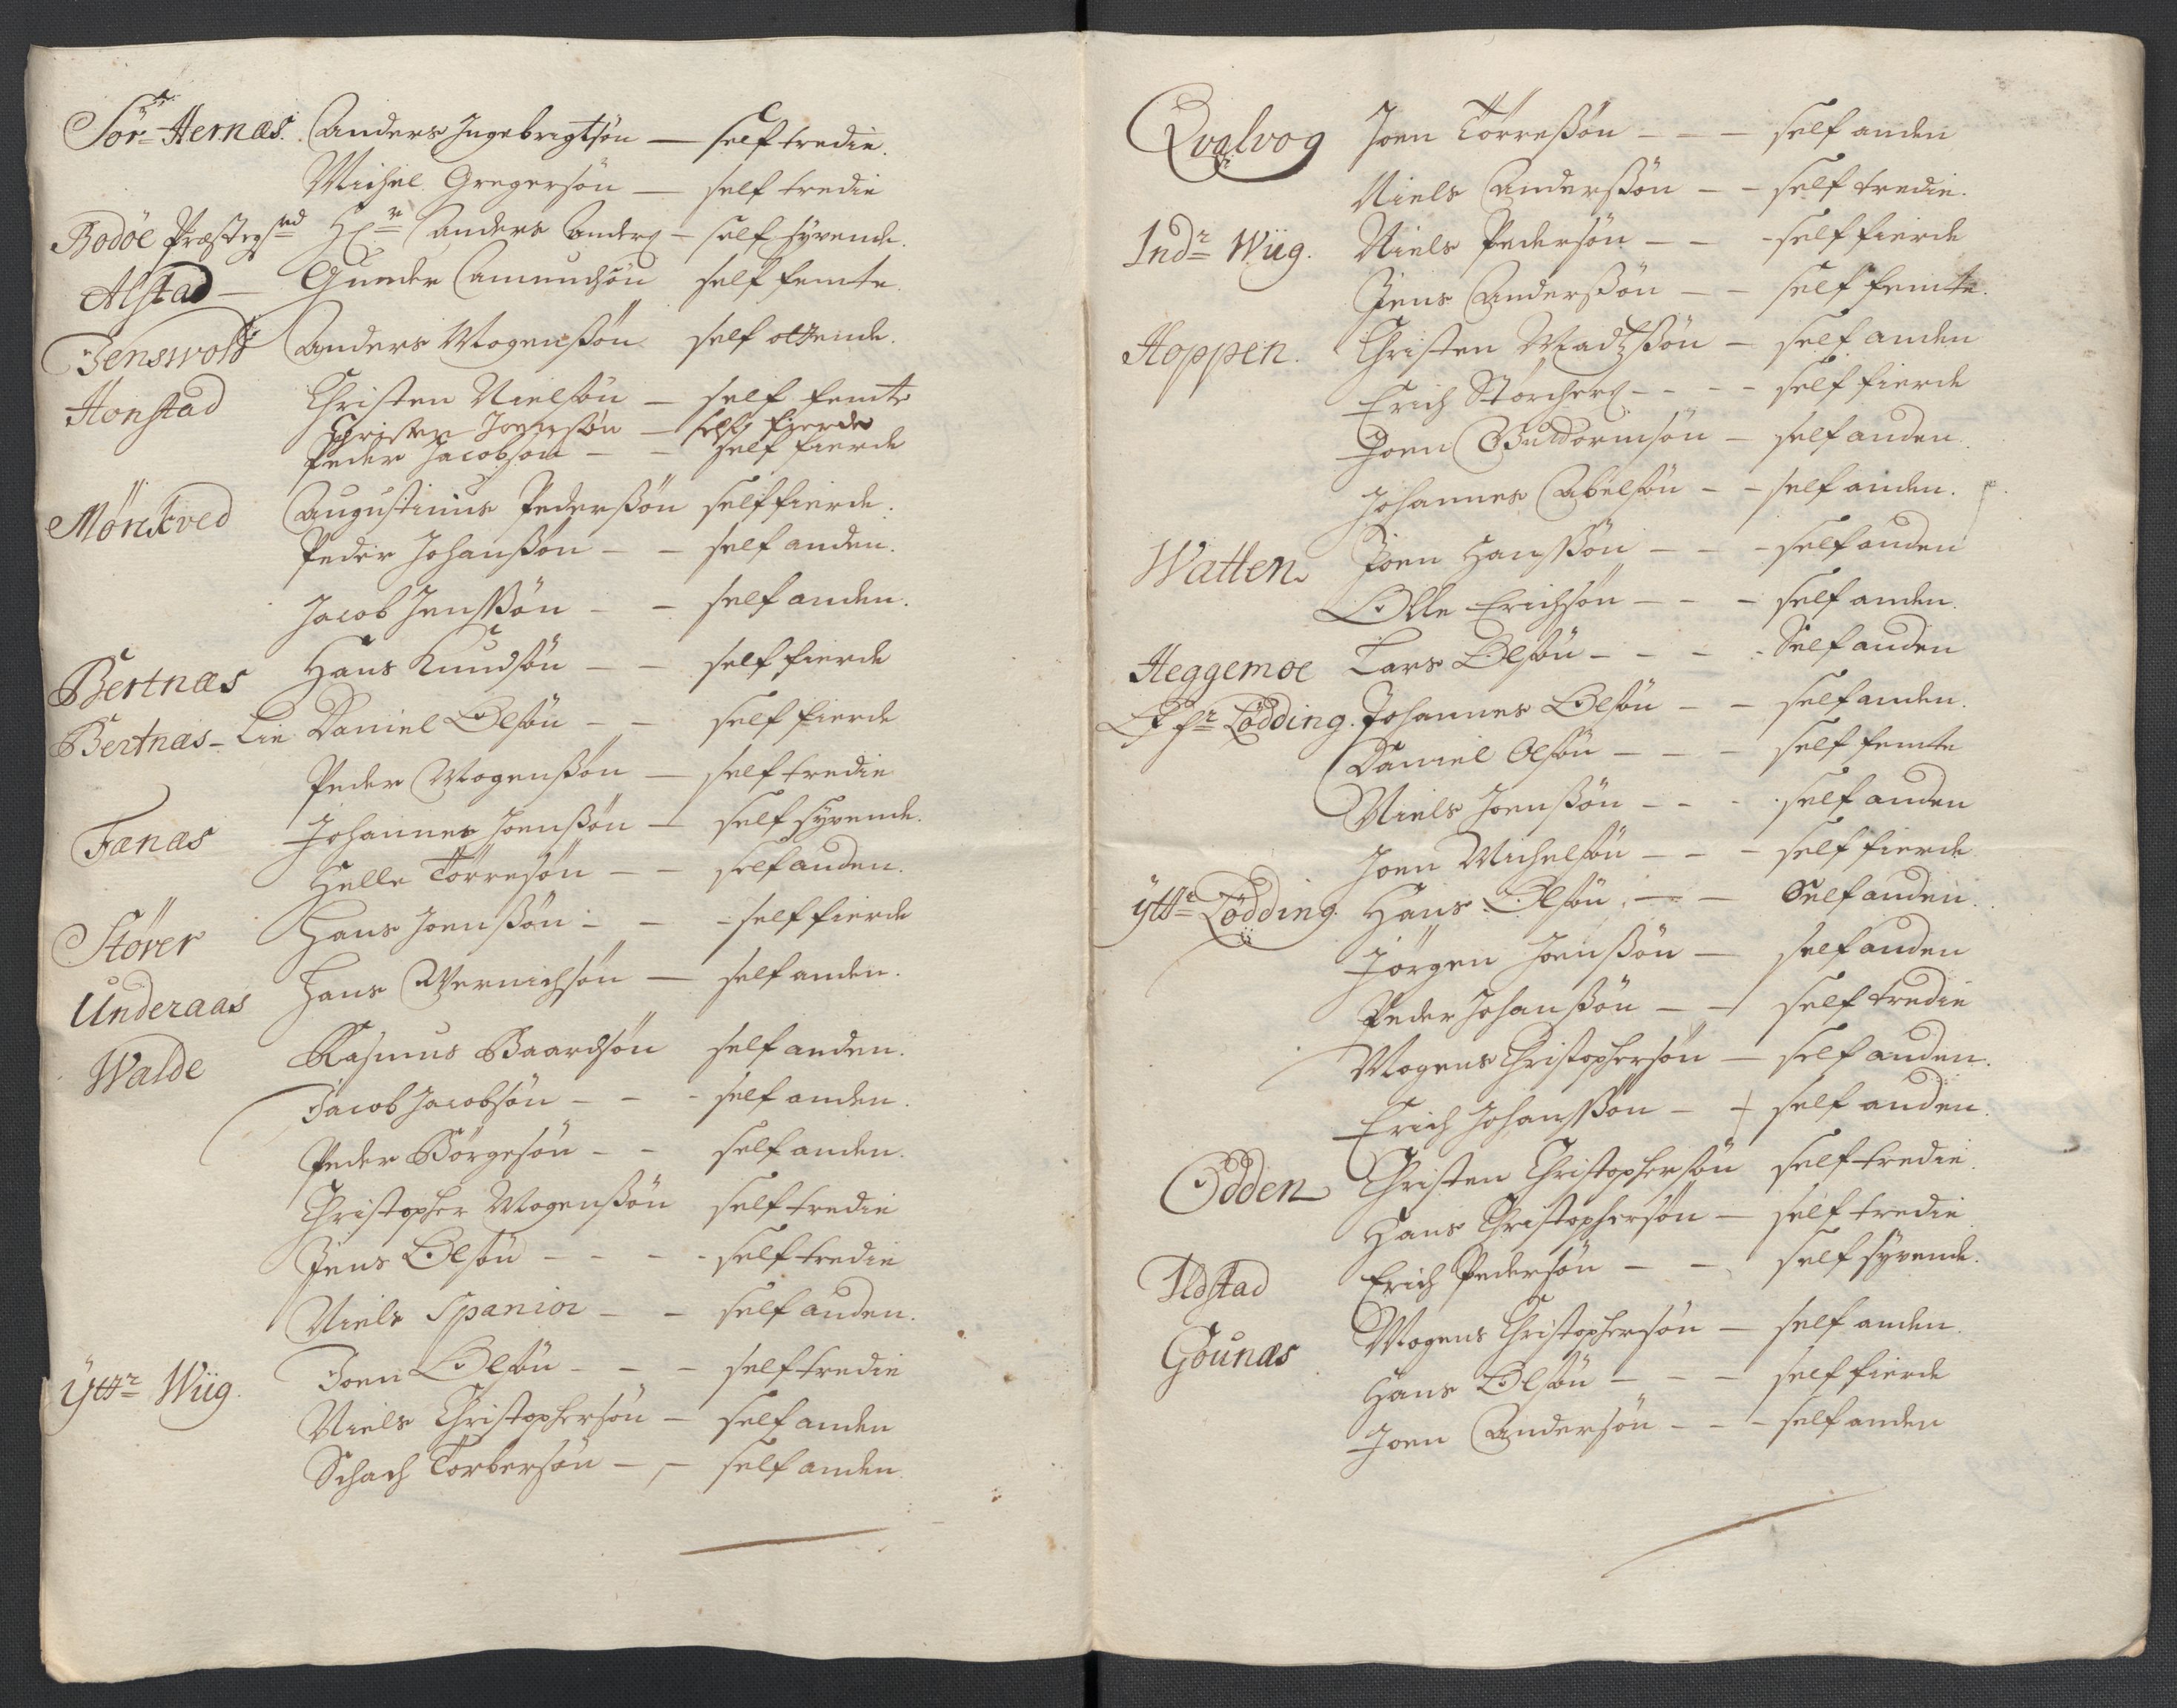 Sör-Hernæs. Anders Ingebrigtsön — self tredie.
Michel Gregersön — self tredie
Bodöe Præstegrd Hr Anders Anders — self syvende.
Alstad — Gunder Amundsön self femte.
Jenswold Anders Mogenssön self ottende.
Honstad Christen Nielsön — self femte
Christen Joensön — self fierde
Peder Jacobsön — — self fierde
Mönkved Augustinus Pederssön self fierde.
Peder Johanssön — — self anden.
Jacob Jenssön — — self anden.
Bertnæs Hans Knudsön — — self fierde
Bertnæs-Lie Daniel Olsön — — self fierde
Peder Mogenssön — self tredie
Fænæs Johannes Joenssön — self syvende.
Helle Törresön — — self anden.
Stöver Hans Joenssön — — self fierde
Underaas Hans Wernichsön — self anden.
Walde Rasmus Baardsön self anden.
Jacob Jacobsön — — - self anden.
Peder Börgesön — — self anden.
Christopher Mogenssön self tredie
Jens Olsön — — — self tredie
Niels Spanior — — self anden.
Yttr Wiig. Joen Olsön — — — self tredie
Niels Christophersön — self anden
Schach Torbersön — — self anden.
Qvalvog Joen Törressön — — — self anden
Niels Anderssön — — self tredie.
Indr Wiig. Niels Pedersön — — self fierde
Jens Anderssön — — self femte.
Hoppen. Christen Madtzsön — self anden
Erich Storchers — — — self fierde
Joen Guttormsön — self anden.
Johannes Abelsön — — self anden.
Watten. Joen Hanssön — — — self anden
Olle Erichsön — — — self anden.
Heggemoe Lars Olsön — — — Self anden
Lödding. Johannes Olsön — — self anden.
Daniel Olsön — — — self femte
Niels Joenssön — — — self anden
Joen Michelsön — — — self fierde
yttr Lödding. Hans Olsön — — Self anden.
Jörgen Joenssön — self anden
Peder Johanssön — — self tredie
Mogens Christophersön — self anden.
Erich Johanssön — + self anden.
Odden Christen Christophersön self tredie.
Hans Christophersön — self tredie
Ildstad Erich Pedersön — — self syvende.
Gounæs Mogens Christophersön — self anden.
Hans Olsön — — — self fierde
Joen Andersön — — — self anden